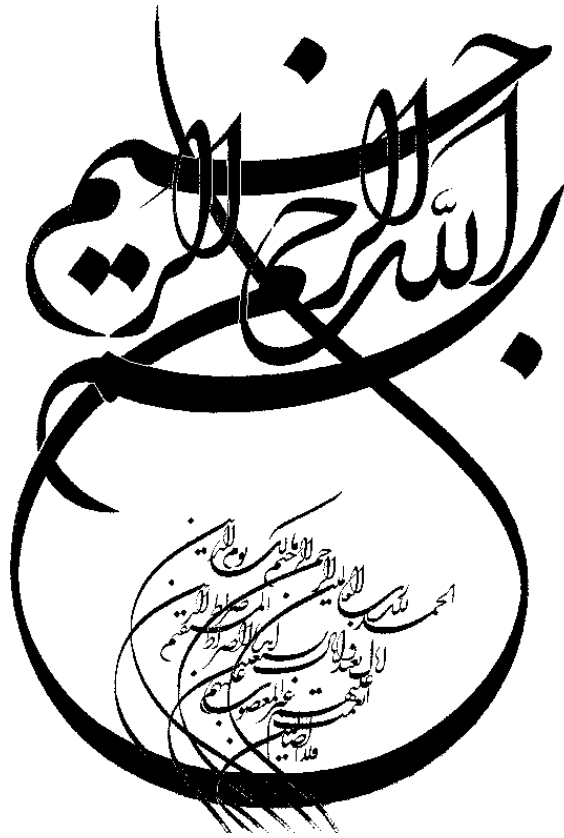 بسم الله الرحمن الرحیم
الحمد لله رب العالمین الرحمن الرحیم مالک یوم الدین
ایاک نعبد و ایاک نستعین
اهدنا الصراط المستقیم صراط الذین
انعمت علیهم غیر المغضوب علیهم
ولا الضالین